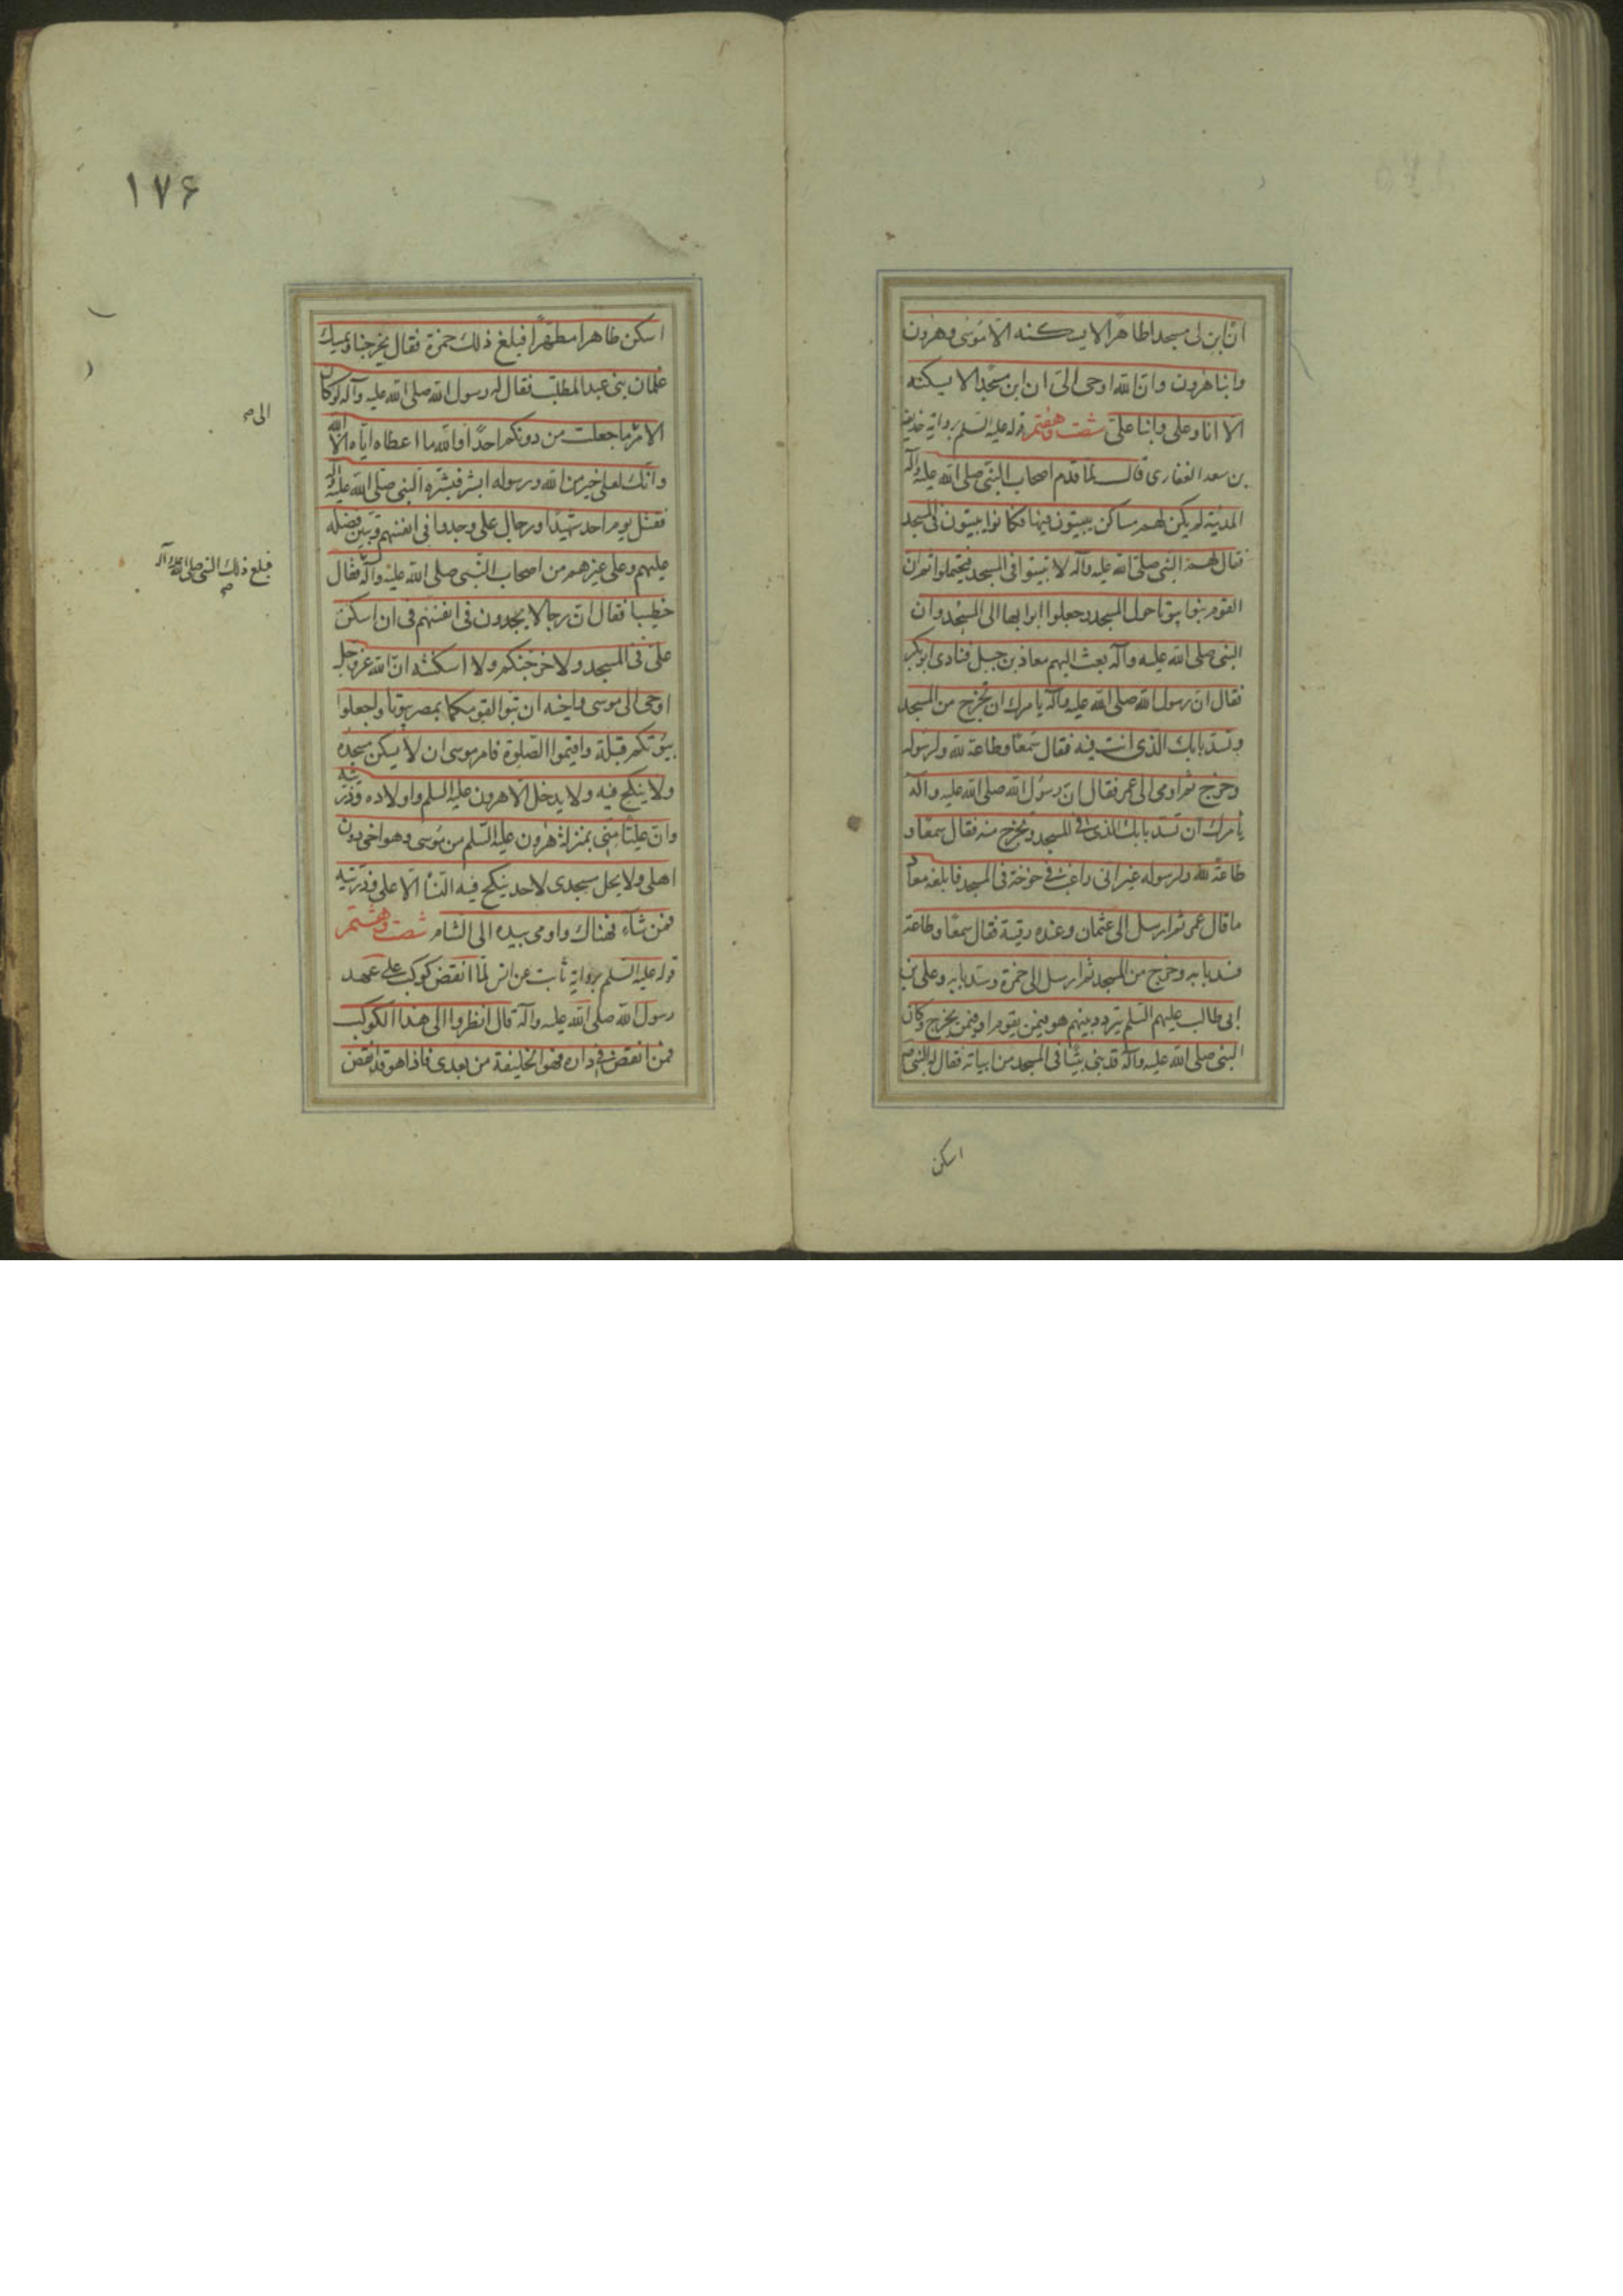 ان ابن لى مسجدا طاهرا لا يسكنه الا موسى وهرون
وابنا هرون وان الله اوحى الى ان ابن مسجدا لا يسكنه
الا انا وعلى وابنا على شصت وهفتم قوله عليه السلم برواية حذيفة
بن سعد الغفارى قال لما قدم اصحاب النبى صلى الله عليه وآله
المدينة لم يكن لهم مساكن يبيتون فيها فكانوا يبيتون فى المسجد
فقال لهم النبى صلى الله عليه وآله لا تبيتوا فى المسجد فتحتلموا ثم ان
القوم بنوا بيوتا حول المسجد وجعلوا ابوابها الى المسجد وان
النبى صلى الله عليه وآله بعث اليهم معاذ بن جبل فنادى ابوبكر
فقال ان رسول الله صلى الله عليه وآله يامرك ان تخرج من المسجد
وتسد بابك الذى انت فيه فقال سمعا وطاعة لله ولرسوله
وخرج ثم اومى الى عمر فقال ان رسول الله صلى الله عليه وآله
يأمرك ان تسد بابك الذى فى المسجد وتخرج منه فقال سمعا و
طاعة لله ولرسوله غير انى راغب فى خوخة فى المسجد فابلغه معاذ
ما قال عمر ثم ارسل الى عثمان وعنده رقية فقال سمعا وطاعة
فسد بابه وخرج من المسجد ثم ارسل الى حمزة وسد بابه وعلى بن
ابى طالب عليهم السلم يتردد بينهم هو فيمن يقوم او فيمن يخرج وكان
النبى صلى الله عليه وآله قد بنى بيتا فى المسجد من ابياته فقال له النبى ص
اسكن
١٧۶
اسكن طاهرا مطهرا فبلغ ذلك حمزة فقال يخرجنا ويمسك
غلمان بنى عبدالمطلب فقال له رسول الله صلى الله عليه وآله لو كان
الامر ما جعلت من دونكم احدا والله ما اعطاه اياه الا الله
الى م
وانك لعلى خير من الله ورسوله ابشر فبشره النبى صلى الله عليه وآله
فقتل يوم احد شهيدا ورجال على وجدوا فى انفسهم وتبين فضله
عليهم وعلى غيرهم من اصحاب النبى صلى الله عليه وآله فقال
فبلغ ذلك النبى صلى الله عليه وآله م
خطيبا فقال ان رجالا يجدون فى انفسهم فى ان اسكن
على فى المسجد ولا خرجنكم ولا اسكنته ان الله عز وجل
اوحى الى موسى واخيه ان تبوا لقومكما بمصر بيوتا واجعلوا
بيوتكم قبلة واقيموا الصلوة فامر موسى ان لا يسكن مسجده
ولا ينكح فيه ولا يدخل الا هرون عليه السلم واولاده وذريته
وان عليا منى بمنزلة هرون عليه السلم من موسى وهو اخى دون
اهلى ولا يحل مسجدى لاحد ينكح فيه النسا الا على وذريته
فمن شآء فهناك واومى بيده الى الشام شصت وهشتم
قوله عليه السلم برواية ثابت عن انس لما انقض كوكب على عهد
رسول الله صلى الله عليه وآله قال انظروا الى هذا الكوكب
فمن انقض فى داره فهو الخليفة من بعدى فاذا هو قد انقض